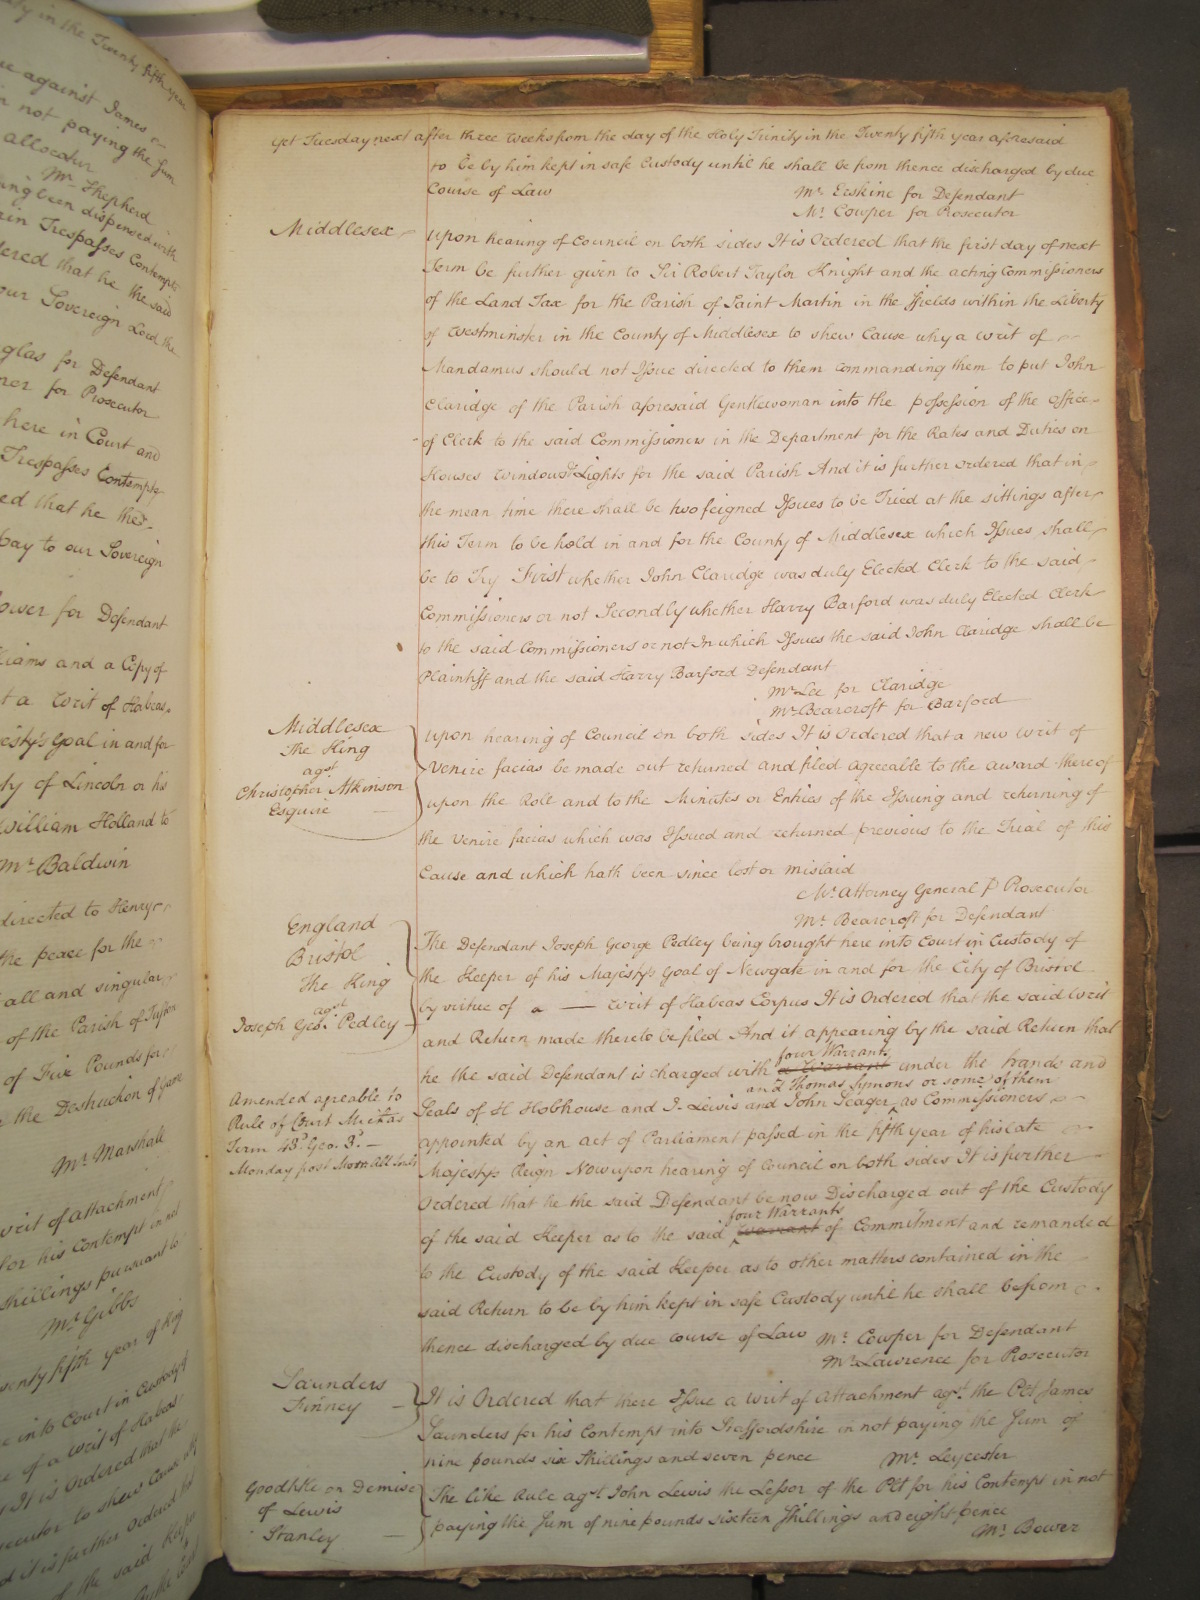 Yet Tuesday next after three Weeks from the day of the Holy Trinity in the Twenty fifth year aforesaid
to be by him kept in safe Custody until he shall be from thence discharged by due
Course of Law
Mr. Erskine for Defendant
Mr. Cowper for Prosecutor
Middlesex
upon hearing of Council on both sides It is Ordered that the first day of next
Term be further given to Sir Robert Taylor Knight and the acting Commissioners
of the Land Tax for the Parish of Saint Martin in the ffields within the Liberty
of Westminster in the County of Middlesex to shew Cause why a writ of
Mandamus should not Issue directed to them commanding them to put John
Claridge of the Parish aforesaid Gentlewoman into the possession of the office
of Clerk to the said Commissioners in the Department for the Rates and Duties on
Houses Windows & Lights for the said Parish And it is further ordered that in
the mean time there shall be two feigned Issues to be Tried at the sittings after
this Term to be hold in and for the County of Middlesex which Issues shall
be to Try First whether John Claridge was duly Elected Clerk to the said
Commissioners or not Secondly whether Harry Barford was duly Elected Clerk
to the said Commissioners or not In which Issues the said John Claridge shall be
Plaintiff and the said Harry Barford Defendant
Mr. Lee for Claridge
Mr. Bearcroft for Barford
Middlesex
The King
agst
Christopher Atkinson
Esquire
upon hearing of Council on both sides It is Ordered that a new writ of
Venire facias be made out returned and filed agreeable to the award thereof
upon the Roll and to the Minutes or Entries of the Issuing and returning of
the venire facias which was Issued and returned previous to the Trial of this
Cause and which hath been since lost or mislaid
Mr. Attorney General P Prosecutor
Mr. Bearcroft for Defendant
England
Bristol
The King
agst
Joseph Geo. Pedley
The Defendant Joseph George Pedley being brought here into Court in Custody of
the Keeper of his Majesty's Goal of Newgate in and for the City of Bristol
by virtue of a — writ of Habeas Corpus It is Ordered that the said writ
and Return made thereto be filed And it appearing by the said Return that
four Warrants
he the said Defendant is charged with a Warrant under the hands and
and Thomas Symons or some of them
Seals of H Hobhouse and J. Lewis and John Seager as Commissioners
appointed by an act of Parliament passed in the fifth year of his late
Majesty's Reign Now upon hearing of Council on both sides It is further
Ordered that he the said Defendant be now Discharged out of the Custody
four Warrants
of the said Keeper as to the said Warrant of Commitment and remanded
to the Custody of the said Keeper as to other matters contained in the
said Return to be by him kept in safe Custody until he shall be from
thence discharged by due course of Law Mr. Cowper for Defendant
Mr. Lawrence for Prosecutor
Amended agreable to
Rule of Court Michas
Term 43d. Geo. 3d.
Monday post
Saunders
Finney
It is Ordered that there Issue a writ of Attachment agst. the Plt James
Saunders for his Contempt into Staffordshire in not paying the Sum of
nine pounds six Shillings and seven pence Mr. Leycester
Goodtitle on Demise
of Lewis
Stanley
The like Rule agst. John Lewis the Lessor of the Plt for his Contempt in not
paying the Sum of nine pounds sixteen Shillings and eight pence
Mr. Bower
in the Twenty fifth year
against James
not paying the Sum
allocatur
Mr. Shepherd
being been dispensed with
Trespasses Contempts
ordered that he the said
our Sovereign Lord the
glas for Defendant
for Prosecutor
here in Court and
Trespasses Contempts
ed that he the
pay to our Sovereign
for Defendant
liams and a Copy of
t a Writ of Habeas
esty's Goal in and for
ty of Lincoln or his
William Holland to
Mr. Baldwin
directed to Henry
the peace for the
all and singular
of the Parish of
of Five Pounds for
the Destruction of Game
Mr. Marshall
writ of attachment
for his Contempt in not
shillings pursuant to
Mr. Gibbs
Twenty fifth year of King
into Court in Custody of
of a writ of Habeas
It is Ordered that the
to shew Cause why
it is further Ordered
of the said Keeper